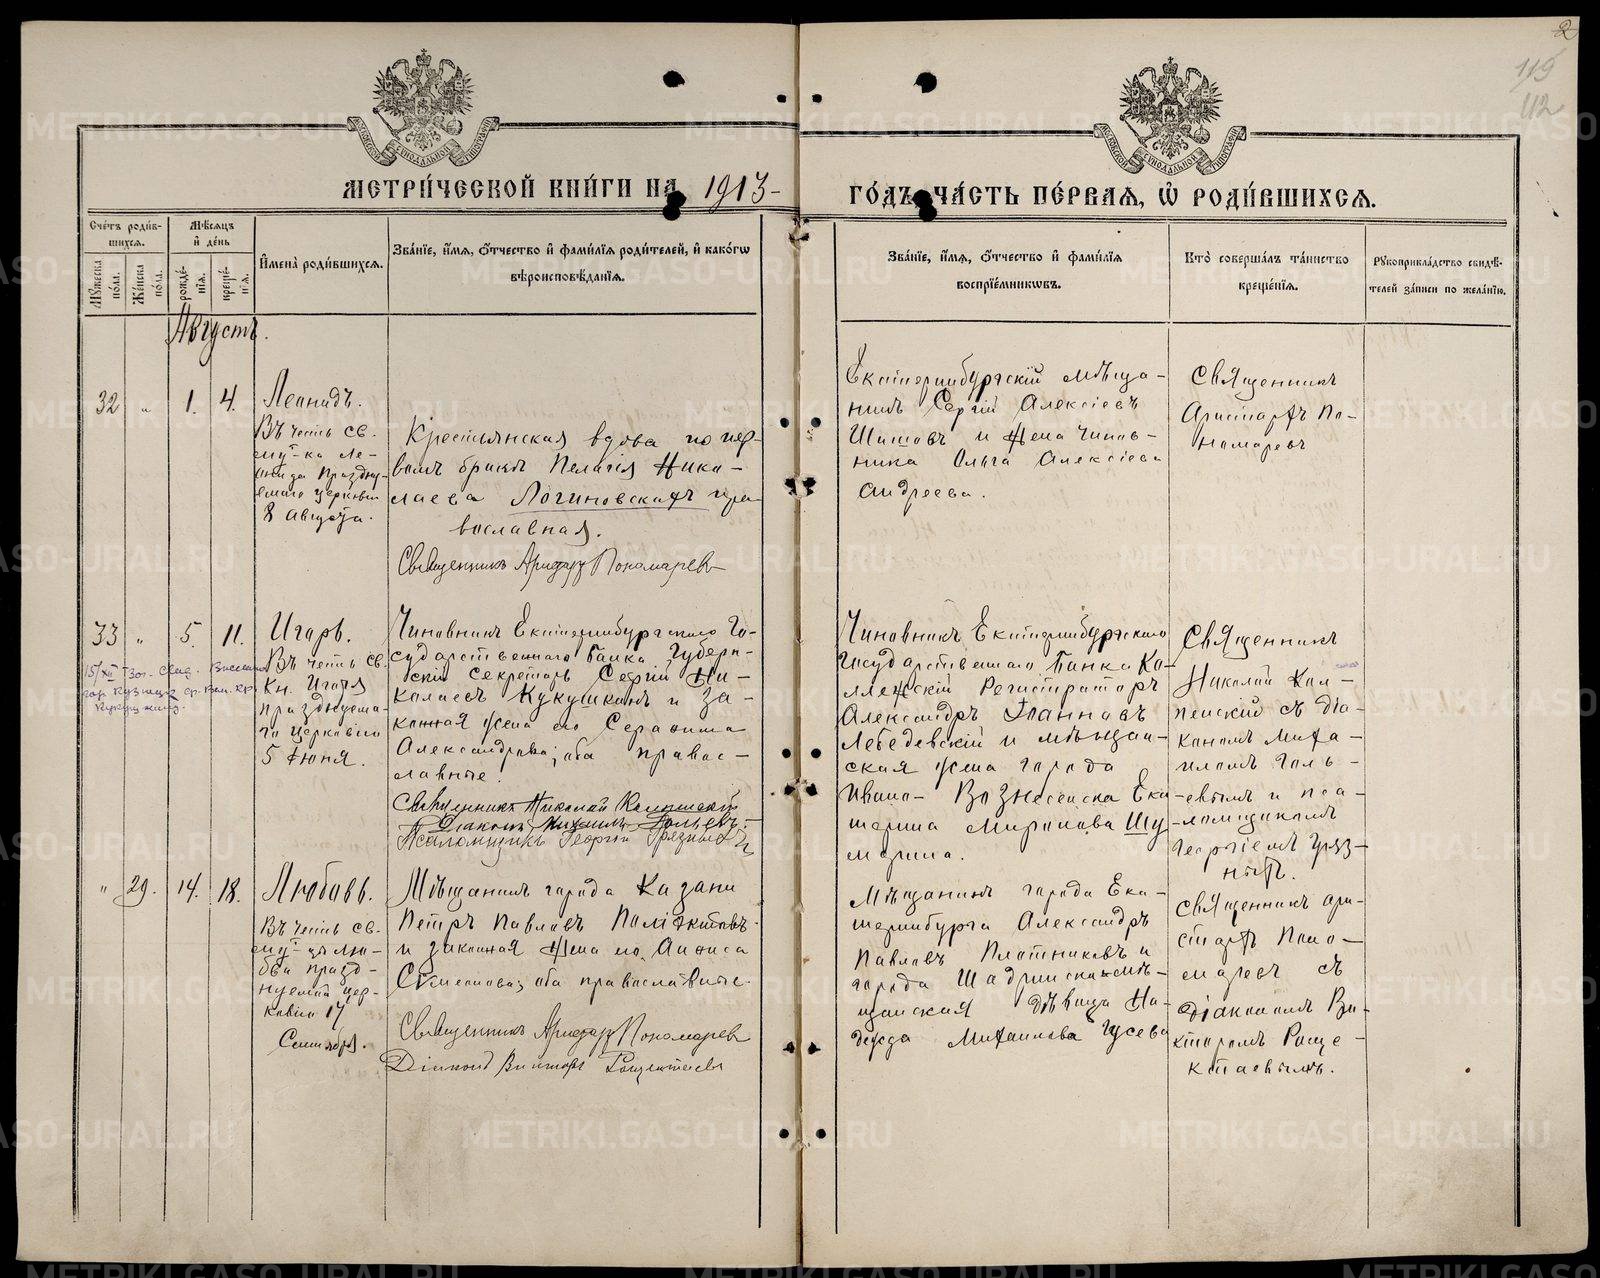 2
119
112
МЕТРИ́ЧЕСКОЙ КНИ́ГИ НА 1913-
ГО́ДЪ ЧА́СТЬ ПЕ́РВАЯ, Ѡ҆ РОДИ́ВШИХСЯ.
Сче́тъ роди́в-
шихся.
Мѣ́сяцъ
и҆ де́нь
Му́жеска по́ла.
Же́нска по́ла.
рожде́-
нїя.
креще́-
нїя.
И҆мена̀ роди́вшихся.
Зва́нїе, и҆́мя, ѻ҆́тчество и҆ фами́лїя роди́телей, и҆ како́гѡ
вѣроисповѣ́данїя.
Зва́нїе, и҆́мя, ѻ҆́тчество и҆ фами́лїя
воспрїе́мникѡвъ.
Кто̀ соверша́лъ та́инство
креще́нїя.
Рукоприкла́дство свидѣ́-
телей за́писи по жела́нїю.
Августъ.
32 " 1. 4.
Леонидъ.
Въ честь св.
муч-ка Ле-
онида праздну-
емаго церковью
8 Августа.
Крестьянская вдова по пер-
вомъ бракѣ Пелагія Нико-
лаева Логиновскихъ пра-
вославная.
Священникъ Аристархъ Пономаревъ
Екатеринбургскій мѣща-
нинъ Сергій Алексіевъ
Шитовъ и жена чинов-
ника Ольга Алексіева
Андреева.
Священникъ
Аристархъ По-
номаревъ
33 " 5. 11.
Игорь.
Въ честь св.
Кн. Игоря
празднуема-
го церковію
5 Іюня.
Чиновникъ Екатеринбургскаго Го-
сударственнаго Банка, Губерн-
скій Секретарь Сергій Ни-
колаевъ Кукушкинъ и за-
конная жена его Серафима
Александрова; оба правос-
лавные.
Священникъ Николай
Діаконъ Михаилъ
Псаломщикъ Георгій Грязныхъ
Чиновникъ Екатеринбургскаго
Государственнаго Банка Ко-
ллежскій Регистраторъ
Александръ Іоанновъ
Лебедевскій и мѣщан-
ская жена города
Ивано-Вознесенска Ека-
терина Миронова Шу-
марина.
Священникъ
Николай Кол-
пенскій съ діа-
кономъ Миха-
иломъ Голь-
евымъ и пса-
ломщикомъ
Георгіемъ Гряз-
ныхъ.
" 29. 14. 18.
Любовь.
Въ честь св.
муч-цы Лю-
бви празд-
нуемой цер-
ковію 17
Сентября.
Мѣщанинъ города Казани
Петръ Павловъ
и законная жена его Аниса
Симеонова; оба православные.
Священникъ Аристархъ Пономаревъ
Діаконъ Викторъ
Мѣщанинъ города Ека-
теринбурга Александръ
Павловъ Плотниковъ и
города Шадринска мѣ-
щанская дѣвица На-
дежда Михаилова Гусева
Священникъ Ари-
стархъ Поно-
маревъ съ
діакономъ Ви-
кторомъ Раще-
ктаевымъ.
METRIKI.GASO-URAL.RU